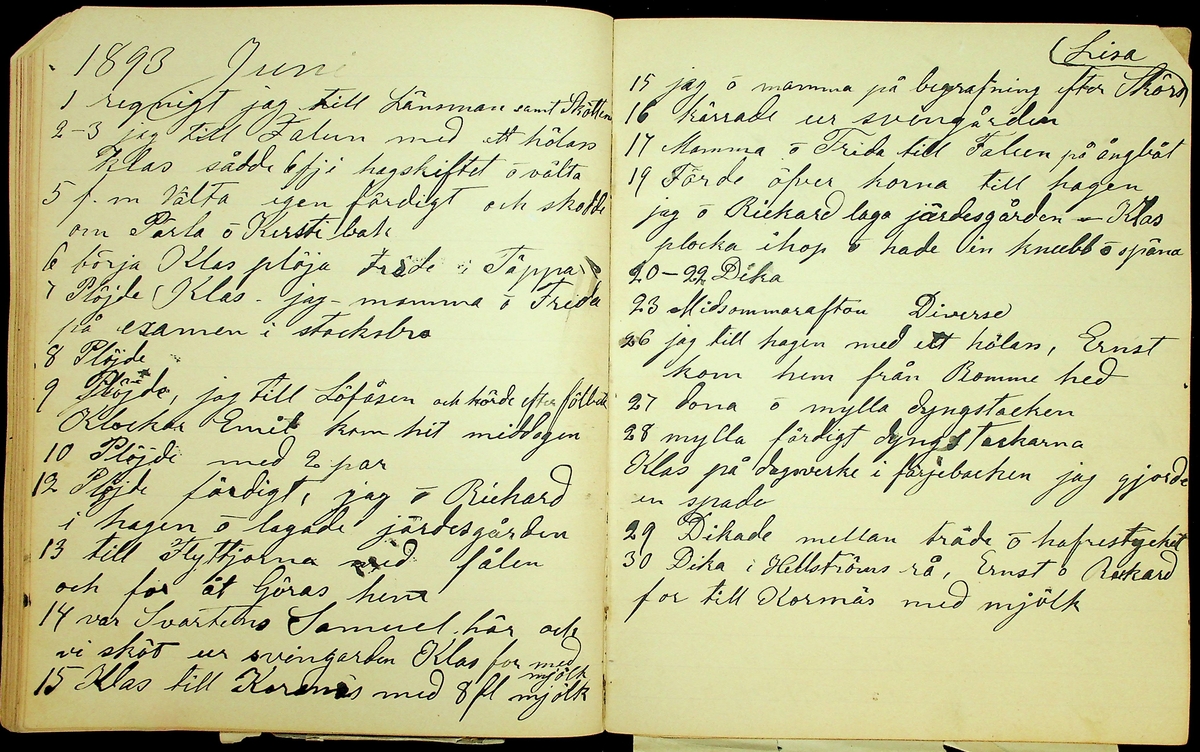 1893 Juni
1 regnigt jag till Länsman samt Skötten
2-3 jag till Falun med ett hölass
Klas sådde 6 fji hagskiftet ō välta
5 f. m Välta igen färdigt och skodde
om Pärla ō Kersti bak
6 börja Klas plöja träde i Täppa
7 Plöjde Klas - jag - mamma ō Frida
på examen i stocksbro
8 Plöjde
9 Plöjde, jag till Löfåsen och hörde efter
Klockar Emil kom hit middagen
10 Plöjde med 2 par
12 Plöjde färdigt, jag ō Rickard
i hagen ō lagade järdesgården
13 till Flyttjorna med fålen
och for åt Göras hem
14 var Svartens Samuel här och
vi sköt ur svingården Klas for med
mjölk
15 Klas till Korsnäs med 8 fl mjölk
Lisa
15 jag ō mamma på begrafning efter Skörs
16 kärrade ur svingården
17 Mamma ō Frida till Falun på ångbåt
19 Förde öfver korna till hagen
jag ō Rickard laga järdesgården - Klas
plocka ihop ō hade in knubb ō spåna
20-22 Dika
23 Midsommarafton Diverse
26 jag till hagen med ett hölass, Ernst
kom hem från Romme hed
27 dona ō mylla dyngstacken
28 mylla färdigt dyngstackarna
Klas på dagsverke i färjebacken jag gjorde
en spade
29 Dikade mellan träde ō hafrestycket
30 Dika i Hellströms rå, Ernst ō Rickard
for till Kornäs med mjölk